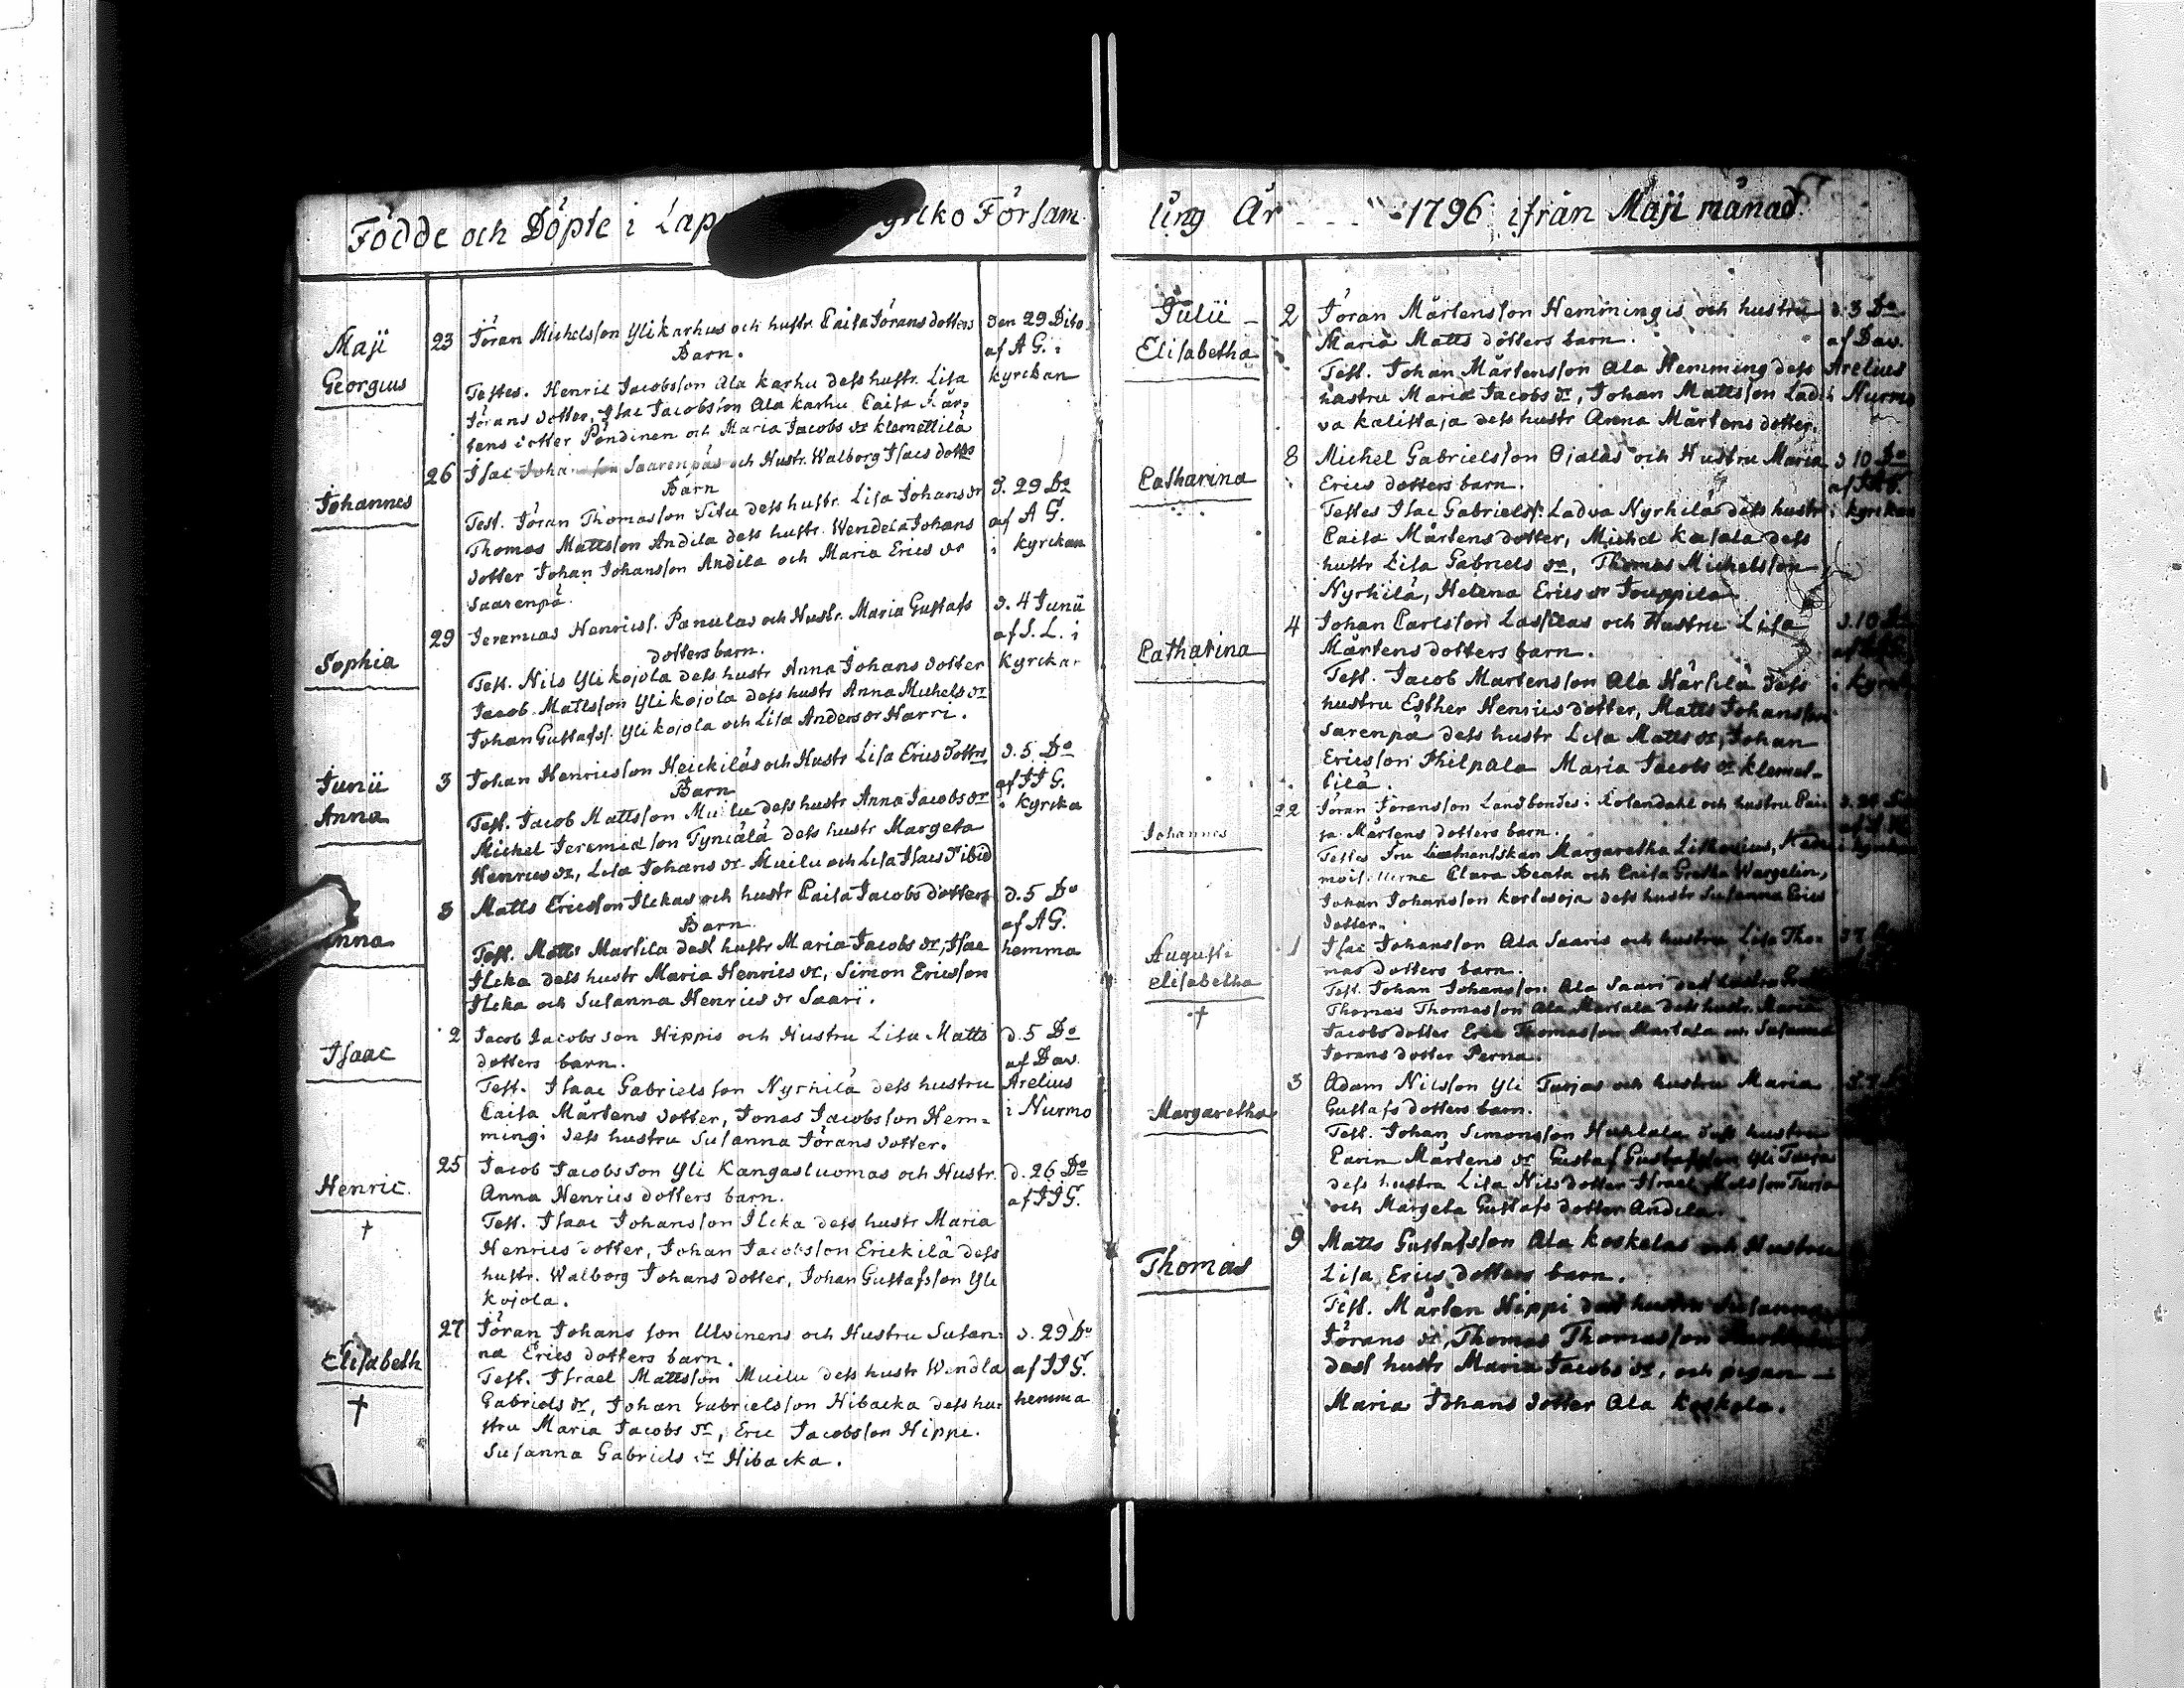 Födde och Döpte i Lap yrcko Församling År 1796 ifrån Maji månad.
Maji
Georgius
23 Jöran Michelsson Ylikarhus och hustr. Caisa Jörans dotters
Barn.
den 29 Dito
af A G. i
kyrckan
Testes. Henric Jacobsson Ala karhu dess hustr. Lisa
Jörans dotter, Isac Jacobsson Ala karhu Caisa Mår-
tens dotter Pöndinen och Maria Jacobs dr Klemettilä
Johannes
26 Isac Joha son Saarenpäs och Hustr. Walborg Isacs dotts
Barn
d. 29 Do
af A G.
i kyrckan
Test. Jöran Thomasson Situ dess hustr. Lisa Johans dr
Thomas Mattsson Andila dess hustr. Wendela Johans
dotter Johan Johansson Andila och Maria Erics dr
Saarenpä.
Sophia
29 Jeremias Henricss. Panulas och Hustr. Maria Gustafs
dotters barn.
d. 4 Junii
af S. L. i
Kyrckan
Test. Nils Yli kojola dess hustr Anna Johans dotter
Jacob Mattsson Yli kojola dess hustr Anna Michels dr
Johan Gustafss. Yli kojola och Lisa Anders dr Harri.
Junii
Anna
3 Johan Henricsson Heickiläs och Hustr Lisa Erics dottrs
Barn
d. 5 Do
af JJ G.
i kyrcka
Test. Jacob Mattsson Muilu dess hustr Anna Jacobs dr
Michel Jeremiasson Tyniälä dess hustr Margeta
Henrics dr, Lisa Johans dr Muilu och Lisa Isacs d ibid
Anna
3 Matts Ericsson Ilckas och hustr Caisa Jacobs dotters
Barn
d. 5 Do
af A G.
hemma
Test. Matts Marsila dess hustr Maria Jacobs dr, Isac
Ilcka dess hustr Maria Henrics dr, Simon Ericsson
Ilcka och Susanna Henrics dr Saari.
Isaac
2 Jacob Jacobsson Hippis och Hustru Lisa Matts
dotters barn.
d. 5 Do
af Dav.
Arelius
i Nurmo
Test. Isaac Gabrielsson Nyrhilä dess hustru
Caisa Mårtens dotter, Jonas Jacobsson Hem-
mingi dess hustru Susanna Jörans dotter.
Henric.
†
25 Jacob Jacobsson Yli Kangasluomas och Hustr.
Anna Henrics dotters barn.
d. 26 Do
af JJ G.
Test. Isaac Johansson Ilcka dess hustr Maria
Henrics dotter, Johan Jacobsson Erickilä dess
hustr. Walborg Johans dotter, Johan Gustafsson Yli
kojola.
Elisabeth
†
27 Jöran Johans son Ulvinens och Hustru Susan-
na Erics dotters barn.
d. 29 Do
af JJ G.
hemma
Test. Israel Mattsson Muilu dess hustr Wendla
Gabriels dr, Johan Gabrielsson Hibacka dess hu-
stru Maria Jacobs dr, Eric Jacobsson Hippi.
Susanna Gabriels dr Hibacka.
Julii
Elisabetha
2 Jöran Mårtensson Hemmingis och hustru
Maria Matts dotters barn.
d. 3 Do
af Dav.
Arelius
i Nurmo
Test. Johan Mårtensson Ala Hemming dess
hustru Maria Jacobs dr, Johan Mattsson Lad-
va kalistaja dess hustr Anna Mårtens dotter.
Catharina
8 Michel Gabrielsson Ojalas och Hustru Maria
Erics dotters barn.
d. 10 Do
i kyrckan
Testes Isac Gabrielss. Ladva Nyrhilä dess hustr
Caisa Mårtens dotter, Michel Kasala dess
hustr Lisa Gabriels dr, Thomas Michelsson
Nyrhilä, Helena Erics dr Jouppila
Catharina
4 Johan Carlsson Lassilas och Hustru Lisa
Mårtens dotters barn.
d. 10 Do
i kyrck
Test. Jacob Martensson Ala Härsilä dess
hustru Esther Henrics dotter, Matts Johansson
Sarenpä dess hustr Lisa Matts dr, Johan
Ericsson Philpala Maria Jacobs dr Klemet-
tilä.
Johannes
22 Jöran Jöransson Landbondes i Rolandahl och hustru Cai-
sa Mårtens dotters barn.
Testes Fru Lieutnantskan Margaretha Lithovius, Made-
moisellerne Clara Beata och Caisa Gretha Wargelin,
Johan Johansson kortesoja dess hustr Susanna Erics
dotter.
Augusti
Elisabetha
†
1 Isac Johansson Ala Saaris och hustru Lisa Tho-
mas dotters barn.
Test. Johan Johansson Ala Saari dess hustru
Thomas Thomasson Ala Martala dess hustr. Maria
Jacobs dotter Eric Thomasson Martala och Susanna
Jörans dotter Perna.
Margaretha
3 Adam Nilsson Yli Turjas och hustru Maria
Gustafs dotters barn.
Test. Johan Simonsson Huhtala dess hustru
Carin Mårtens dr Gustaf Gustafsson Yli Turja
dess hustru Lisa Nils dotter Israel Turja
och Margeta Gustafs dotter Andila.
Thomas
9 Matts Gustafsson Ala koskelas och Hustru
Lisa Erics dotters barn.
Test. Mårten Hippi dess hustru Susanna
Jörans dr, Thomas Thomasson
dess hustr Maria Jacobs dr, och pigan
Maria Johans dotter Ala Koskela.